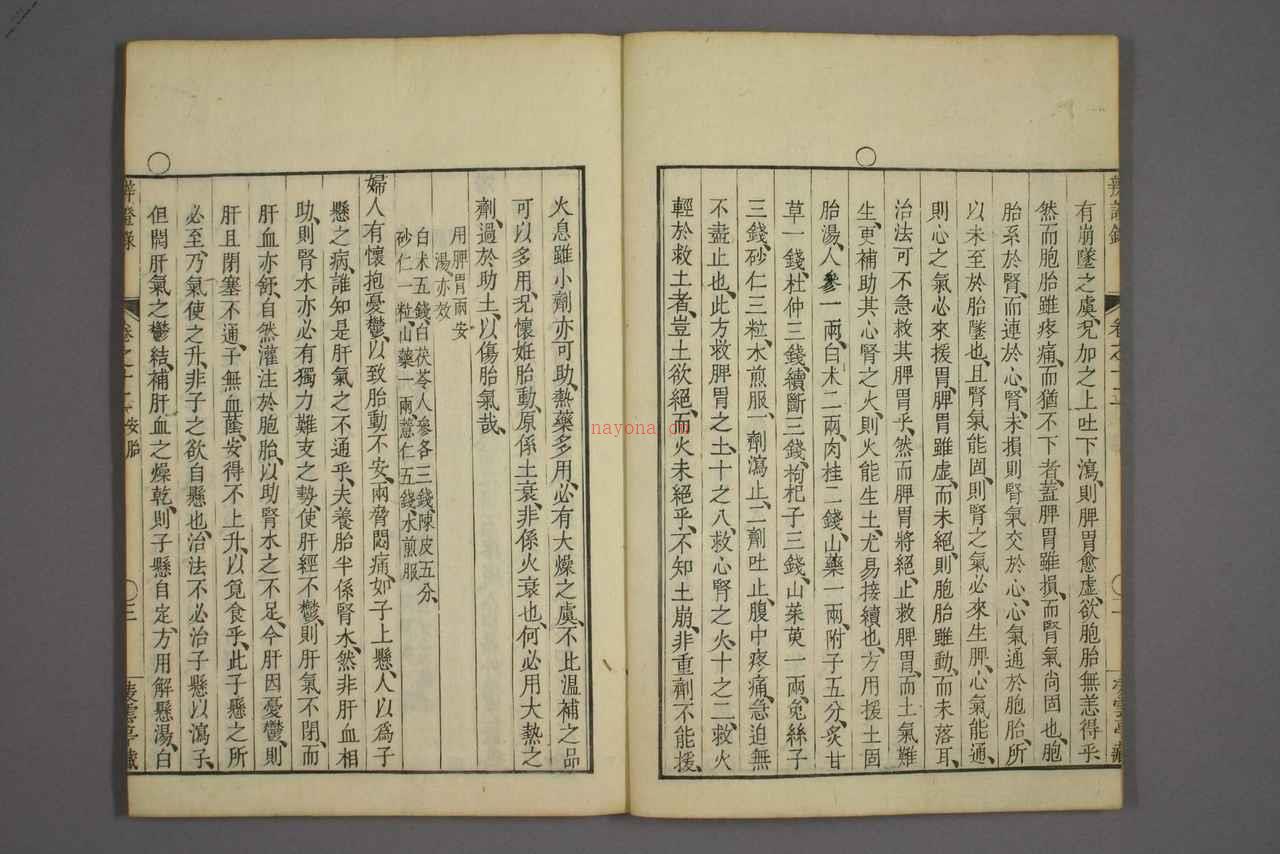 有崩墜之虞、况加之上吐下瀉、則脾胃愈虛、欲胞胎無恙得乎、
然而胞胎雖疼痛、而猶不下者、葢脾胃雖損、而腎氣尚固也、胞
胎系於腎、而連於心、腎未損則腎氣交於心、心氣通於胞胎、所
以未至於胎墜也、且腎氣能固、則腎之氣必來生脾、心氣能通、
則心之氣必來援胃、脾胃雖虛、而未絕、則胞胎雖動、而未落耳、
治法可不急救其脾胃乎、然而脾胃將絕、止救脾胃、而土氣難
生、更補助其心腎之火、則火能生土、尤易接續也、方用援土固
胎湯、人參一兩、白朮二兩、肉桂二錢、山藥一兩、附子五分、炙甘
草一錢、杜仲三錢、續斷三錢、枸杞子三錢、山茱萸一兩、兔絲子
三錢、砂仁三粒、水煎服、一劑瀉止、二劑吐止、腹中疼痛、急迫無
不盡止也、此方救脾胃之土、十之八、救心腎之火、十之二、救火
輕於救土者、豈土欲絕、而火未絕乎、不知土崩、非重劑不能援、
火息雖小劑亦可助、熱藥多用、必有大燥之虞、不比溫補之品
可以多用、况懷妊胎動、原係土衰、非係火衰也、何必用大熱之
劑、過於助土、以傷胎氣哉、
用脾胃兩安
湯、亦效
白朮五錢、白茯苓人參各三錢、陳皮五分、
砂仁一粒、山藥一兩、薏仁五錢、水煎服
婦人有懷抱憂鬱、以致胎動不安、兩脅悶痛、如子上懸、人以爲子
懸之病、誰知是肝氣之不通乎、夫養胎半係腎水、然非肝血相
助、則腎水亦必有獨力難支之勢、使肝經不鬱、則肝氣不閉、而
肝血亦舒、自然灌注於胞胎、以助腎水之不足、今肝因憂鬱、則
肝且閉塞不通、子無血蔭、安得不上升、以覓食乎、此子懸之所
必至、乃氣使之升、非子之欲自懸也、治法不必治子懸以瀉子、
但開肝氣之鬱結、補肝血之燥乾、則子懸自定、方用解懸湯、白
卷之十二 安胎
三
nayona.cn